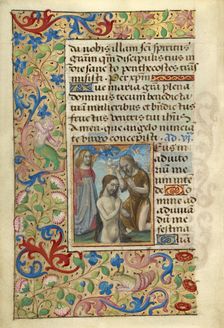 da nobis illam sci spiritus
gram qm discipulis tuis in
die sancto penthecostes tras
misisti. Per xpm
Aue maria gra plena
dominus tecum benedicta
tu i mulieribus et bndictus
fructus ventris tui ihus
Amen. que angelo nuncia
te virgo concepisti. Ad. vi.
Deus in
adiuto
riu me
um inte
de Do
mine ad
adiuuā
du me
festina